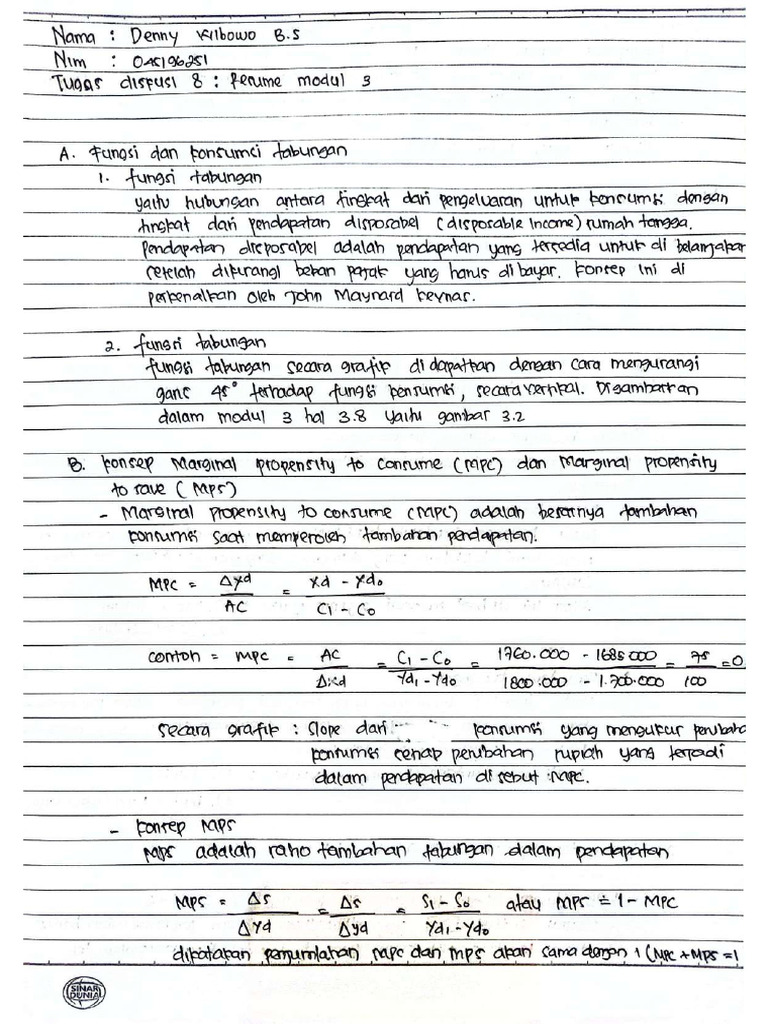 Nama : Denny Wibowo B.S
Nim : 045196251
Tugas diskusi 8 : Resume modul 3
A. Fungsi dan konsumsi tabungan
1. fungsi tabungan
yaitu hubungan antara tingkat dari pengeluaran untuk konsumsi dengan
tingkat dari pendapatan disposabel (disposable income) rumah tangga.
pendapatan disposabel adalah pendapatan yang tersedia untuk di belanjakan
setelah dikurangi beban pajak yang harus dibayar. konsep ini di
perkenalkan oleh John Maynard keynas.
2. fungsi tabungan
fungsi tabungan secara grafik didapatkan dengan cara mengurangi
garis 45° terhadap fungsi konsumsi, secara vertikal. Digambarkan
dalam modul 3 hal 3.8 yaitu gambar 3.2
B. konsep Marginal propensity to consume (MPC) dan Marginal propensity
to save (MPS)
- Marginal propensity to consume (MPC) adalah besarnya tambahan
konsumsi saat memperoleh tambahan pendapatan.
MPC = ΔYd / AC = Yd - Yd0 / C1 - C0
contoh = MPC = AC / ΔYd = C1 - C0 / Yd1 - Yd0 = 1760.000 - 1685000 / 1800.000 - 1.700.000 = 75 / 100 = 0
secara grafik : slope dari konsumsi yang mengukur perubaha
konsumsi setiap perubahan rupiah yang terjadi
dalam pendapatan disebut MPC.
- konsep MPS
MPS adalah rasio tambahan tabungan dalam pendapatan
MPS = Δs / ΔYd = Δs / Δyd = S1 - S0 / Yd1 - Yd0 atau MPS = 1 - MPC
dikatakan penjumlahan MPC dan MPS akan sama dengan 1 (MPC + MPS = 1
SINAR DUNIA